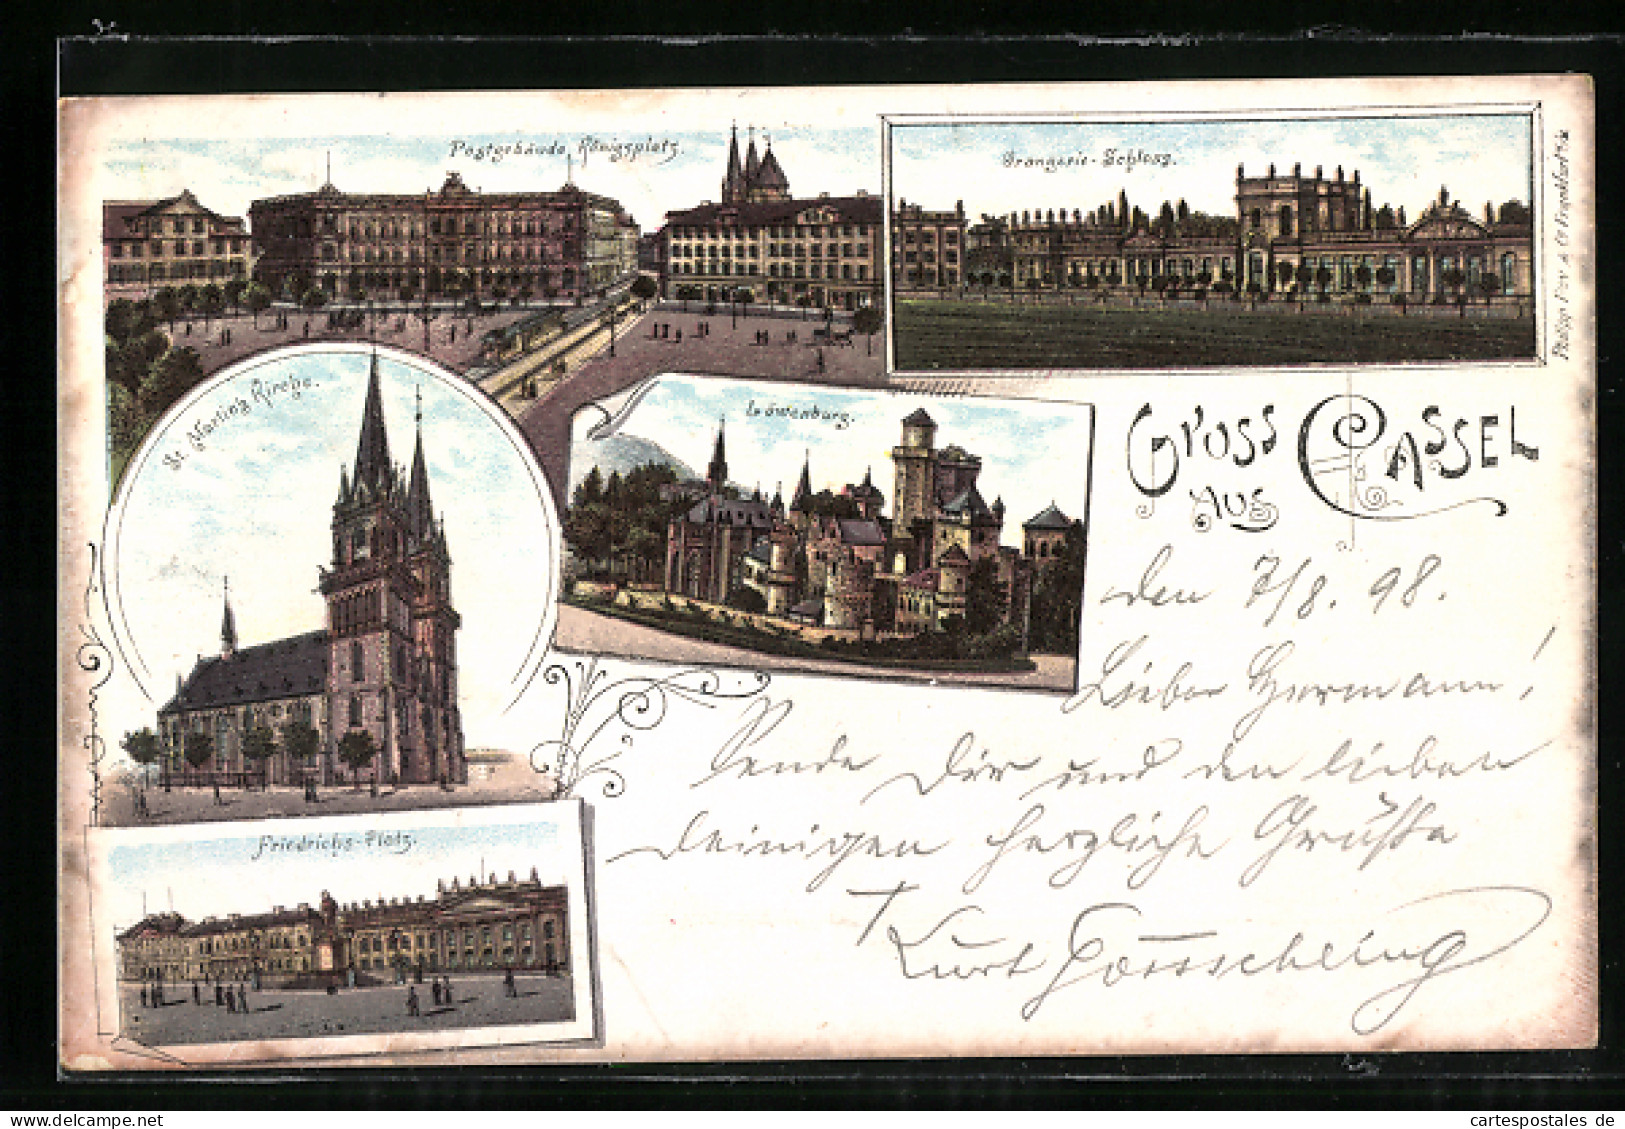 Postgebäude, Königsplatz.
Orangerie-Schloss.
St. Martins Kirche.
Löwenburg.
GRUSS
AUS CASSEL
Friedrichs-Platz.
den 7/8. 98.
Lieber Hermann!
Sende Dir und den lieben
Deinigen herzliche Grüße
Kurt
cartespostales de